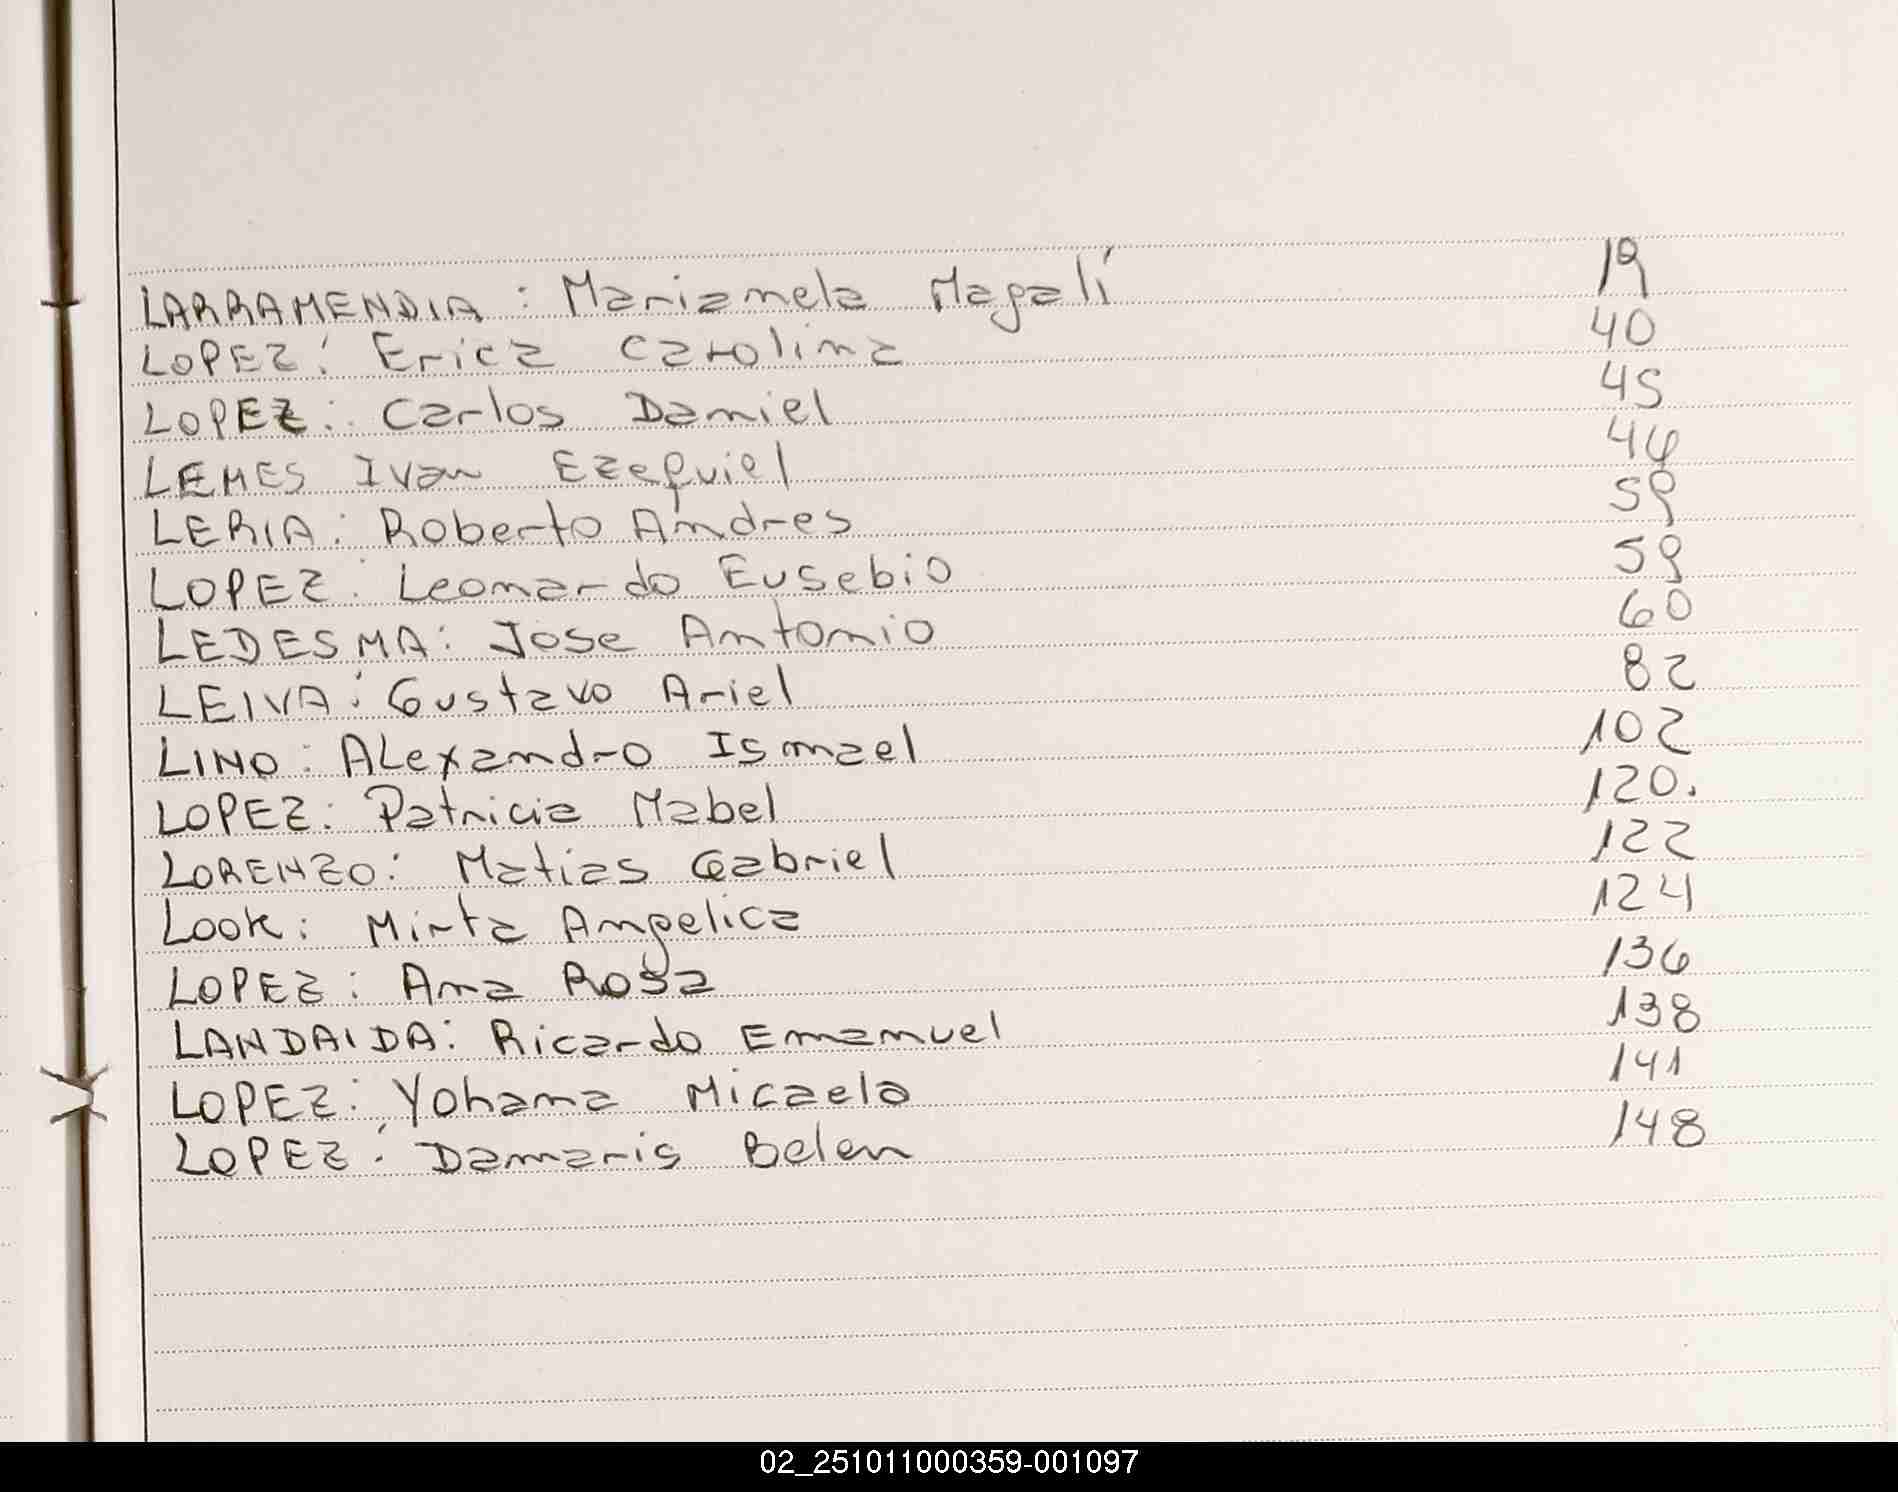 LARRAMENDIA : Marianela Magalí 19
LOPEZ: Erica Carolina 40
LOPEZ: Carlos Daniel 45
LEMES Ivan Ezequiel 46
LERIA: Roberto Andres 59
LOPEZ: Leonardo Eusebio 59
LEDESMA: Jose Antonio 60
LEIVA: Gustavo Ariel 82
LINO: ALexandro Ismael 102
LOPEZ: Patricia Mabel 120.
LORENZO: Matias Gabriel 122
Look: Mirta Angelica 124
LOPEZ: Ana Rosa 136
LANDAIDA: Ricardo Emanuel 138
LOPEZ: Yohana Micaela 141
LOPEZ: Damaris Belen 148
02_251011000359-001097